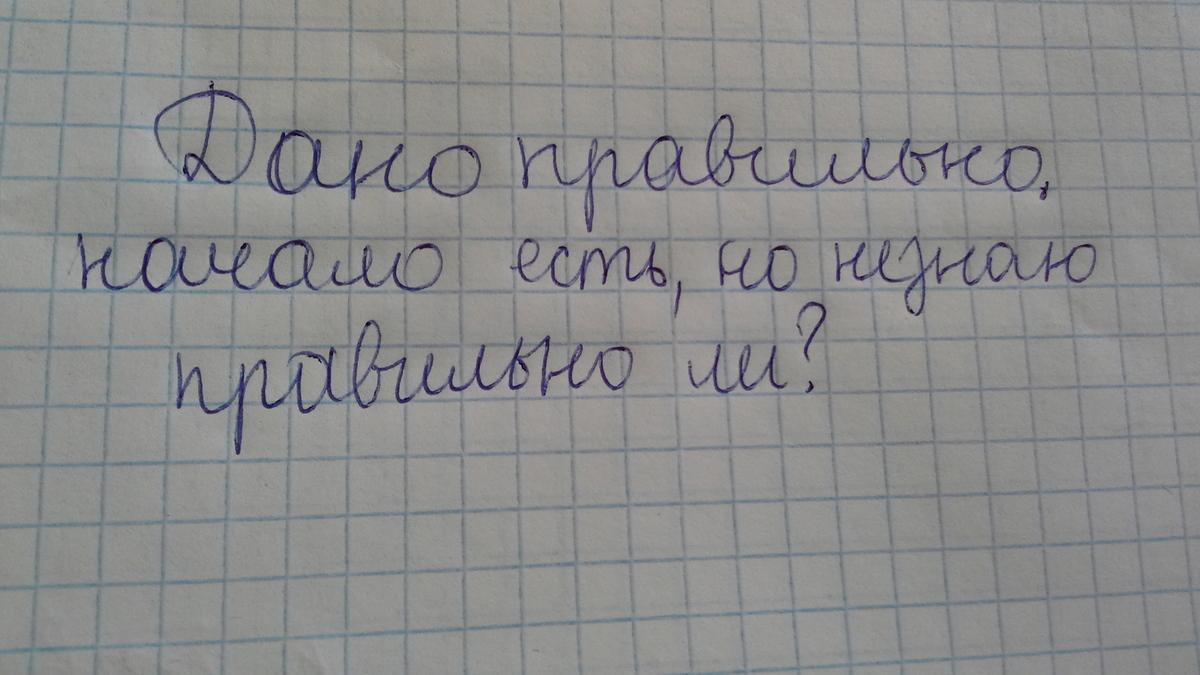 Дано правильно,
начало есть, но незнаю
правильно ли?